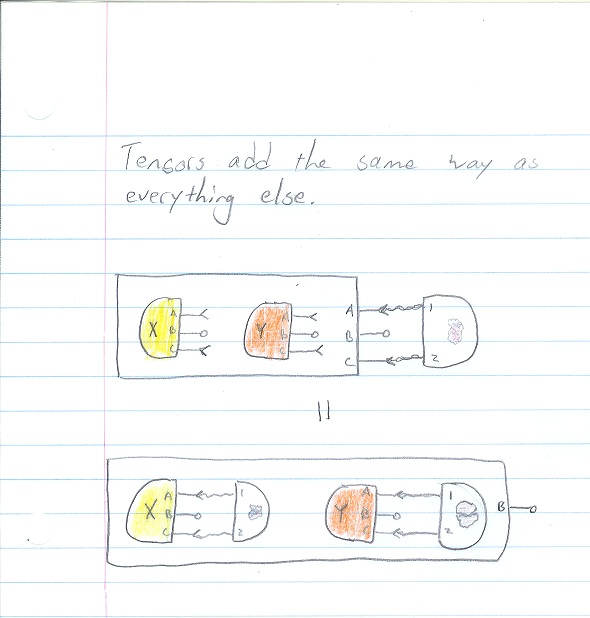 Tensors add the same way as
everything else.
A
X B
C
A
Y B
C
A
B
C
1
2
=
A
X B
C
1
2
A
Y B
C
1
2
B